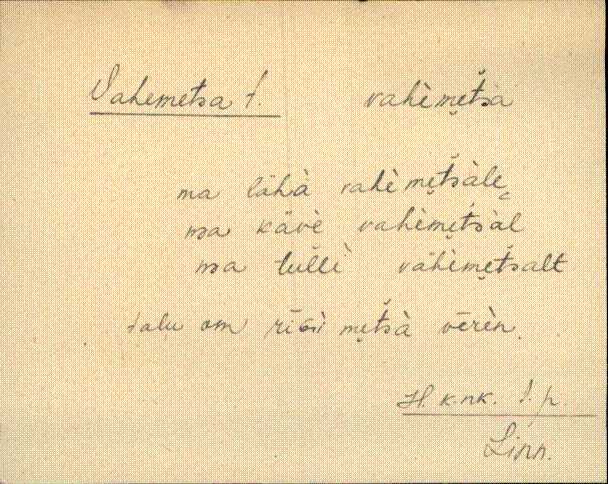 Vahemetsa t. vahème̮t̆sà
ma lähà vahème̮t̆sàle
ma kävè vahème̮t̆sàl
ma tullì vahème̮t̆salt
talu om me̮t̆sà vērèn.
H. k.nk.
Linn.